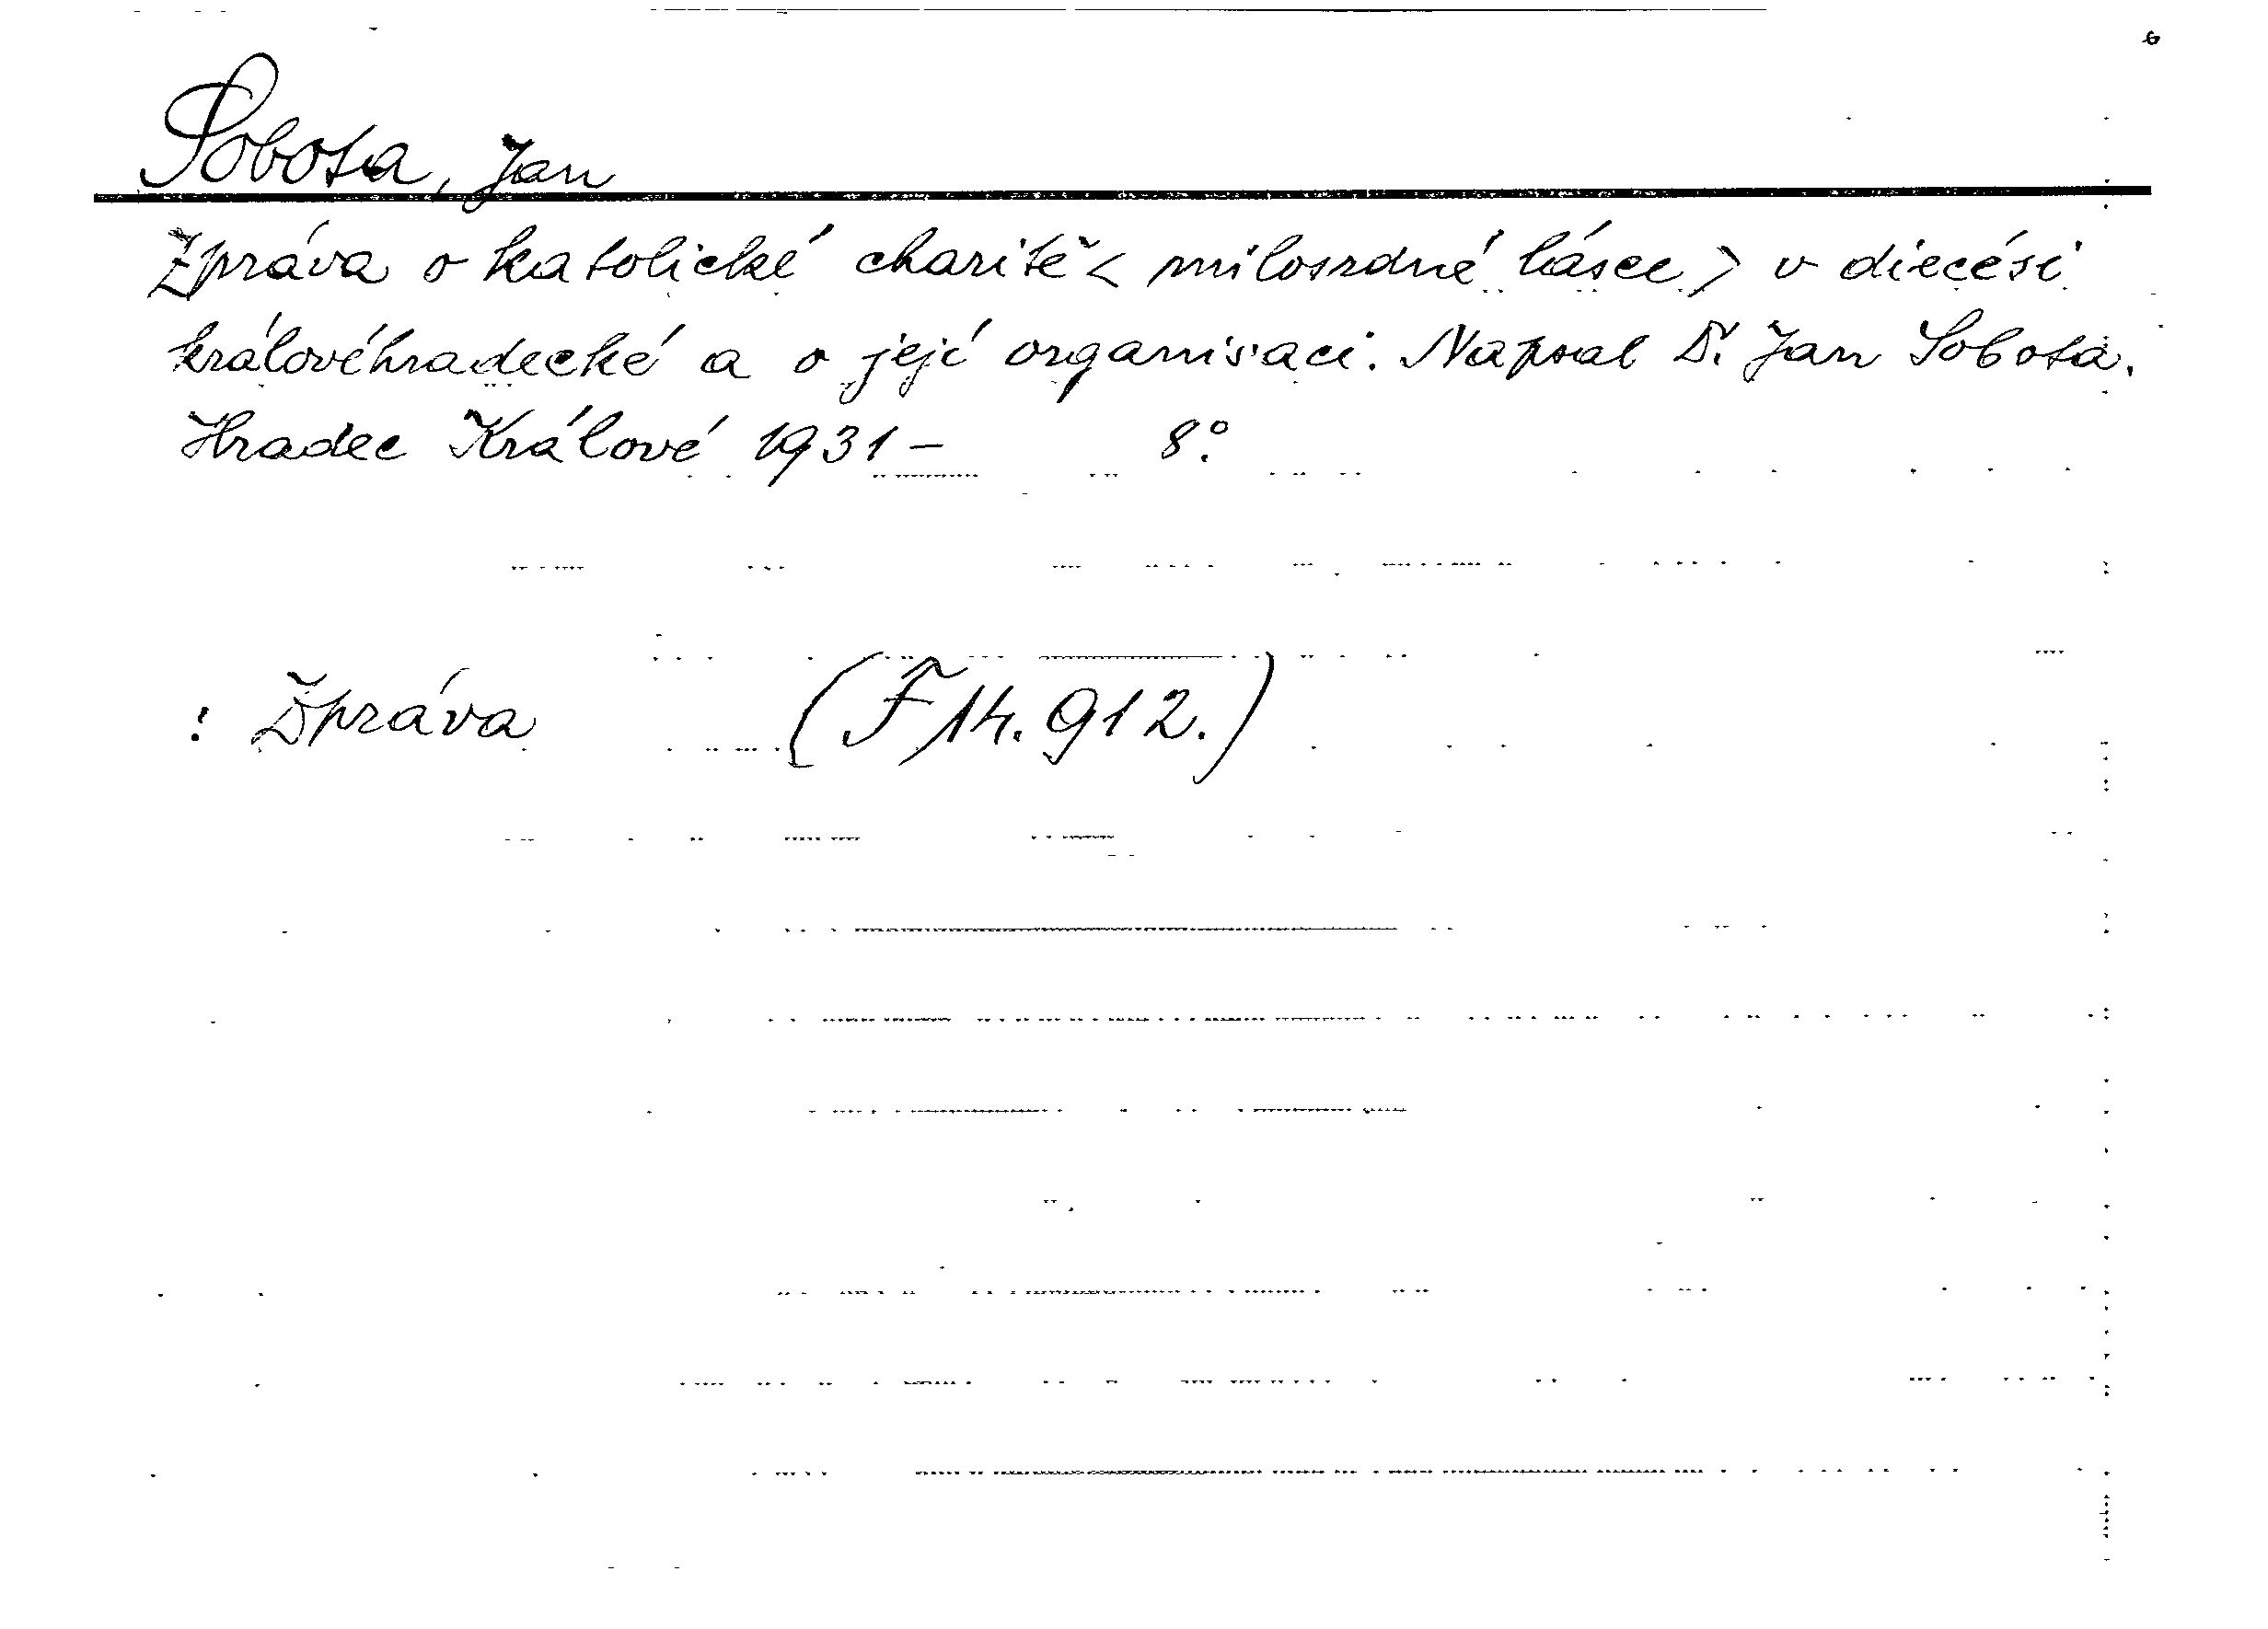 Sobota, Jan
Zpráva o katolické charitě < milosrdné lásce > v diecési
královéhradecké a o její organisaci. Napsal Dr. Jan Sobota.
Hradec Králové 1931 – 8°.
: Zpráva (F 14.912.)